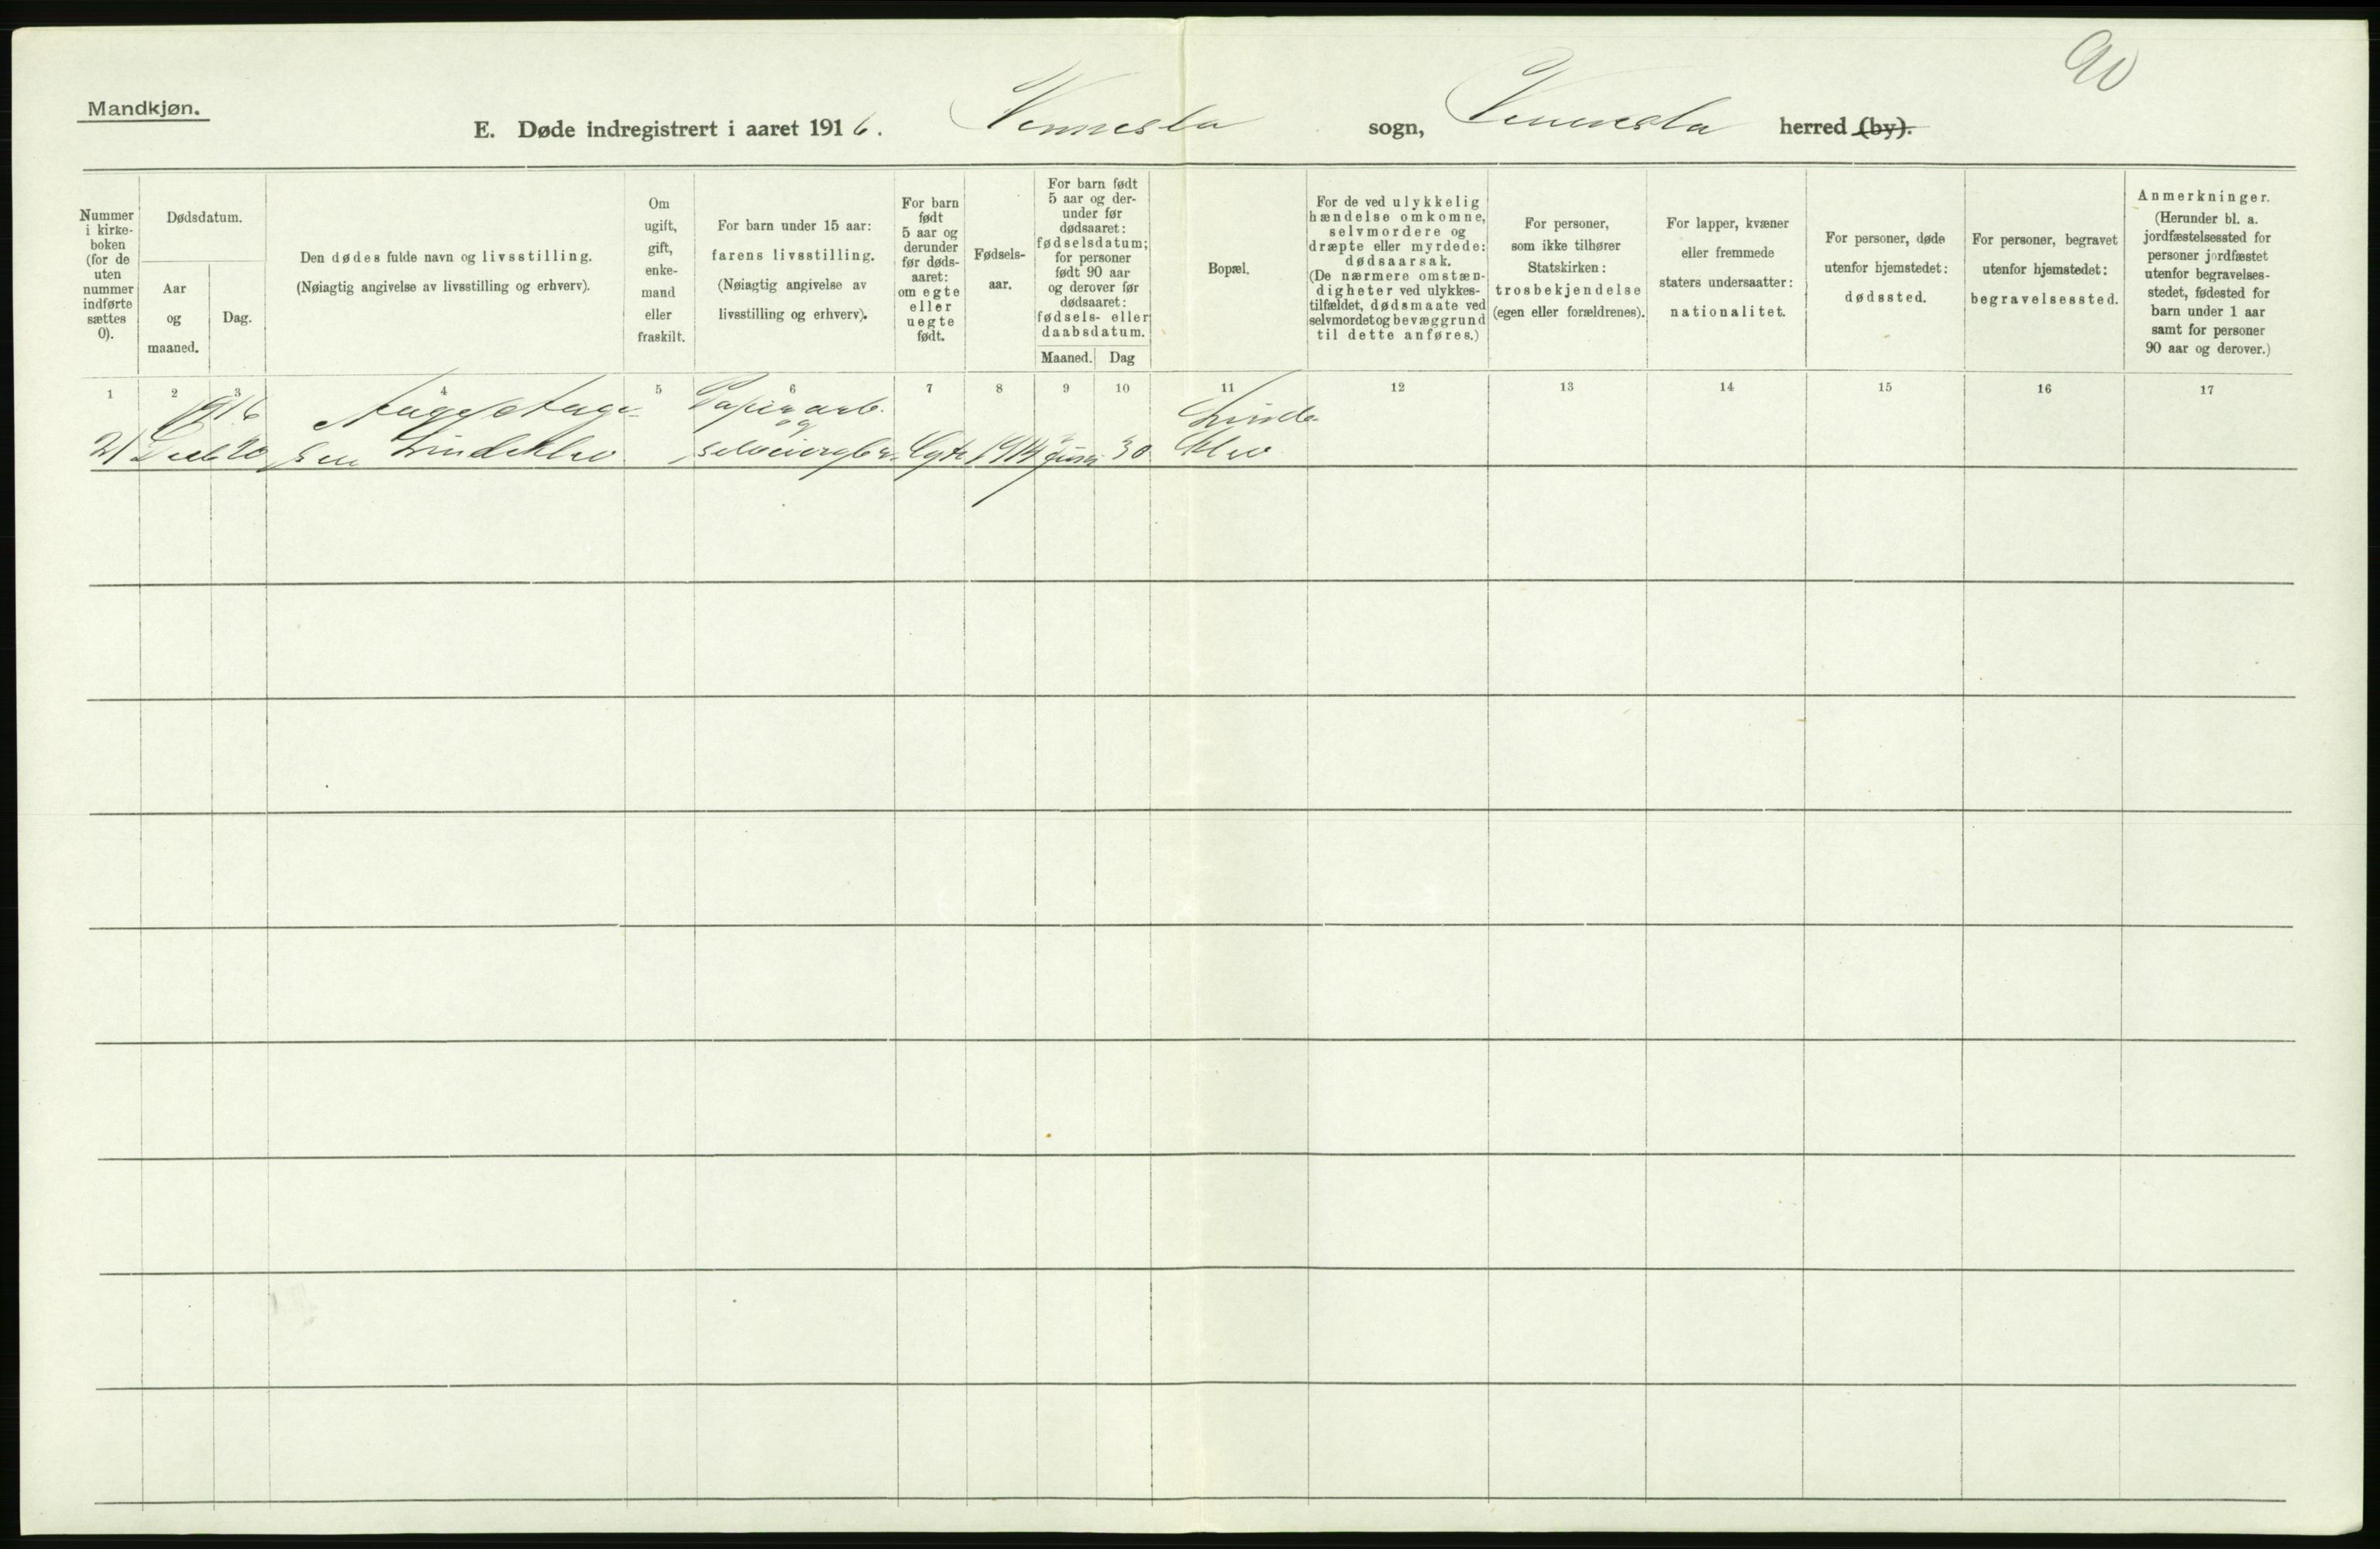 90
Mandkjøn.
E. Døde indregistrert i aaret 1916. Vennesla sogn, Vennesla herred (by).
Nummer
i kirke-
boken
(for de
uten
nummer
indførte
sættes
0).
Dødsdatum.
Aar
og
maaned.
Dag.
Den dødes fulde navn og livsstilling.
(Nøiagtig angivelse av livsstilling og erhverv).
Om
ugift,
gift,
enke-
mand
eller
fraskilt.
For barn under 15 aar:
farens livsstilling.
(Nøiagtig angivelse av
livsstilling og erhverv).
For barn
født
5 aar og
derunder
før døds-
aaret:
om egte
eller
uegte
født.
Fødsels-
aar.
For barn født
5 aar og der-
under før
dødsaaret:
fødselsdatum;
for personer
født 90 aar
og derover før
dødsaaret:
fødsels- eller
daabsdatum.
Maaned.
Dag
Bopæl.
For de ved ulykkelig
hændelse omkomne,
selvmordere og
dræpte eller myrdede:
dødsaarsak.
(De nærmere omstæn-
digheter ved ulykkes-
tilfældet, dødsmaate ved
selvmordet og bevæggrund
til dette anføres.)
For personer,
som ikke tilhører
Statskirken:
trosbekjendelse
(egen eller forældrenes).
For lapper, kvæner
eller fremmede
staters undersaatter:
nationalitet.
For personer, døde
utenfor hjemstedet:
dødssted.
For personer, begravet
utenfor hjemstedet:
begravelsessted.
Anmerkninger.
(Herunder bl. a.
jordfæstelsessted for
personer jordfæstet
utenfor begravelses-
stedet, fødested for
barn under 1 aar
samt for personer
90 aar og derover.)
1 2 3 4 5 6 7 8 9 10 11 12 13 14 15 16 17
1916 Aage Aage- Papirarb. Linde-
og
21 Decb 20 sen Lindeklev selveiergbr. Egte 1914 Juni 30 klev